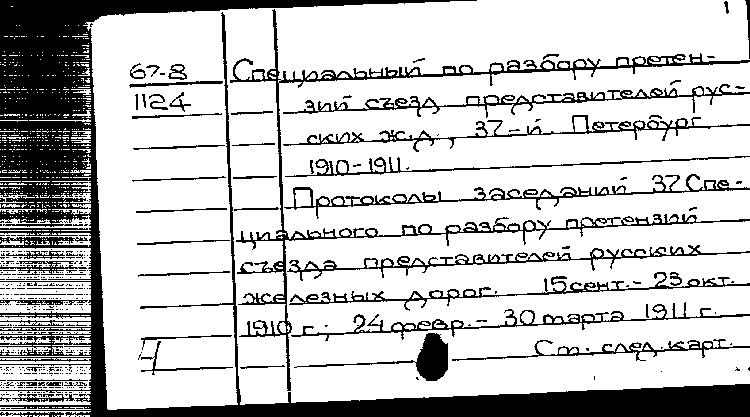 1
67-8 Специальный по разбору претен-
1124 зий съезд представителей рус-
ских ж.д., 37-й. Петербург.
1910-1911.
Протоколы заседаний 37 Спе-
циального по разбору претензий
съезда представителей русских
железных дорог. 15 сент.- 23 окт.
1910 г.; 24 февр.- 30 марта 1911 г.
Ч См. след. карт.